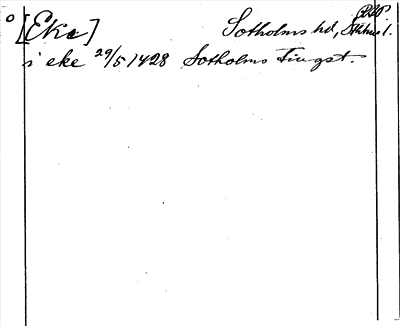 o [Eke] Sotholms hd, Sthlms l.
i eke 29/5 1428 Sotholms Tingst.